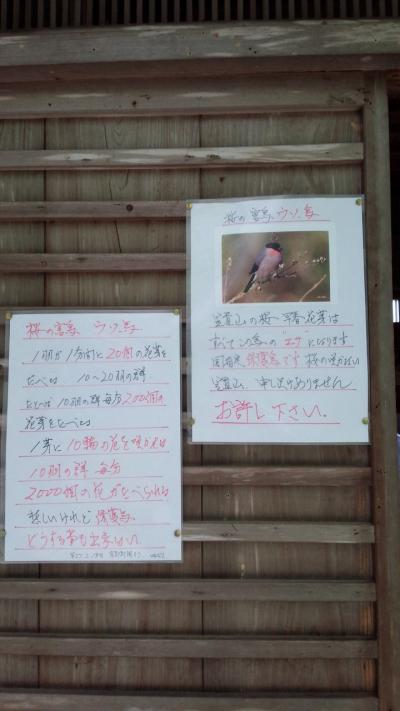 桜の害鳥 ウソ鳥
1羽が1分間に20個の花芽を
たべる 10〜20羽の群
たとえば10羽の群毎分200個の
花芽をたべる
1芽に10輪の花を咲かせる
10羽の群 毎分
2000個の花がたべられる
悲しいけれど 保護鳥
どうする事も出来ない
桜の害鳥 ウソ鳥
笠置山の桜 早春 花芽は
すべてこの鳥の"エサ"になります
保護鳥です 桜の咲かない
笠置山 申し訳ありません
お許し下さい.